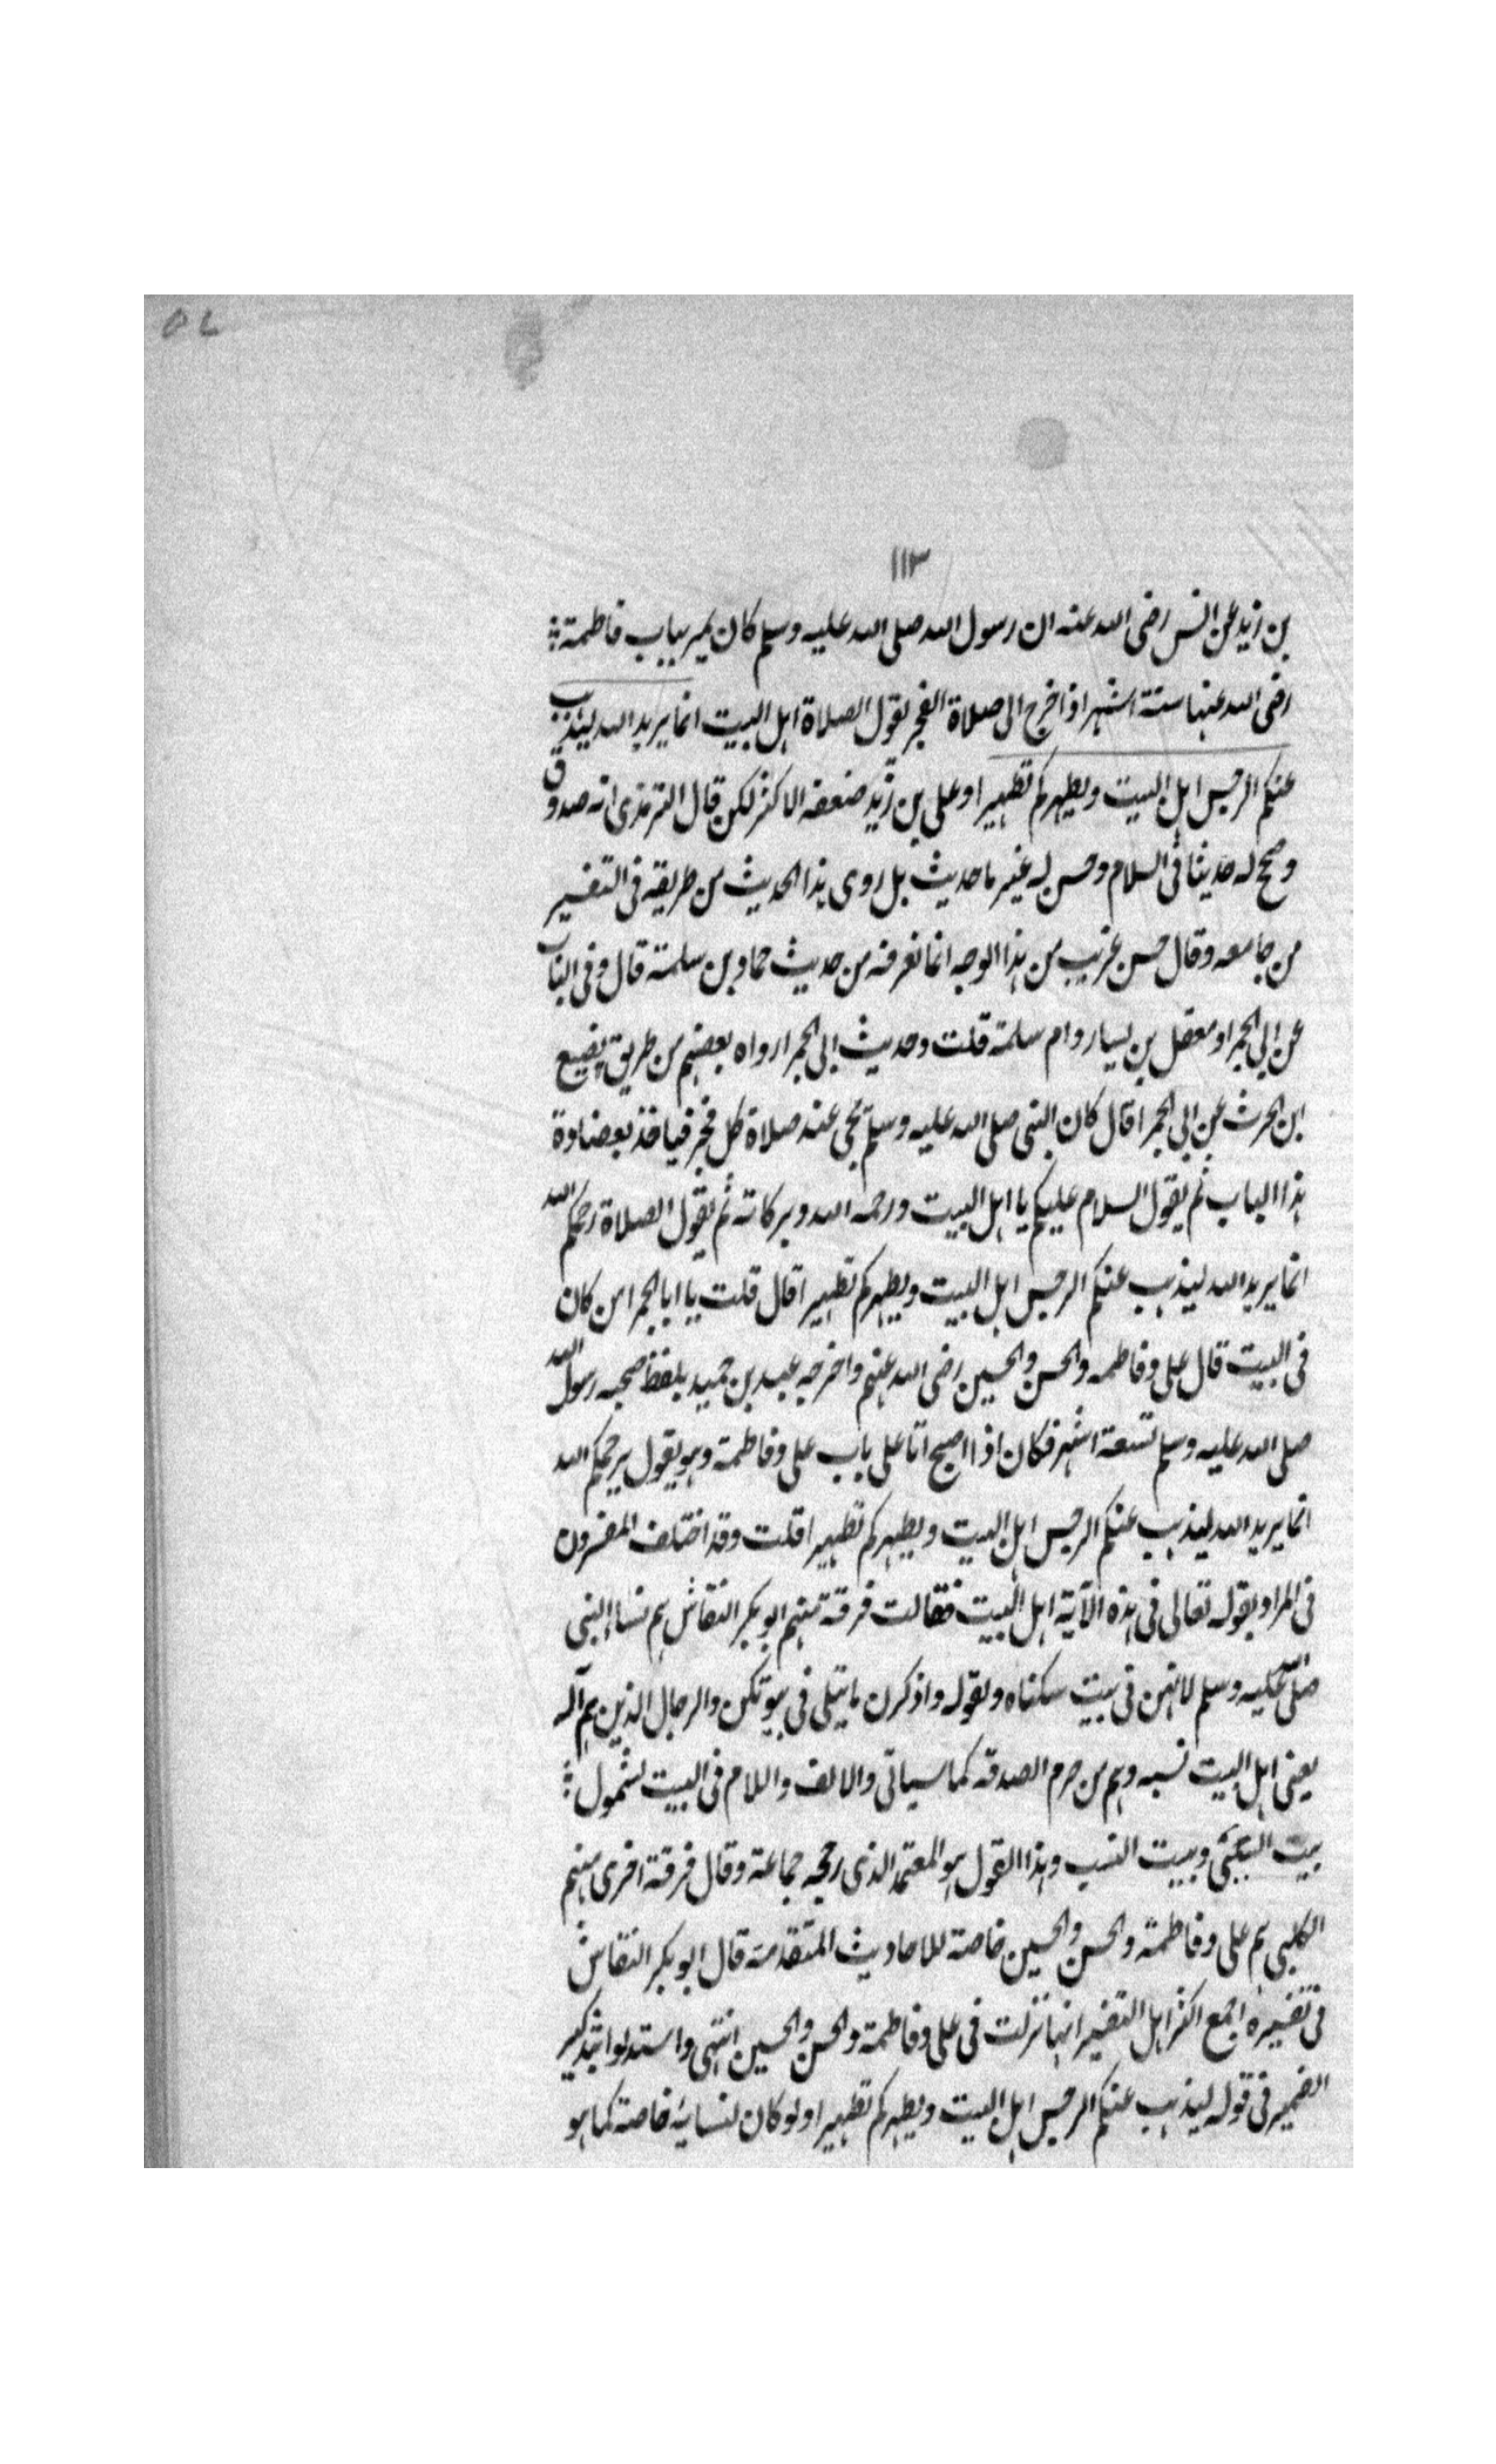 ١١٣
بن زيد عن انس رضى الله عنه ان رسول الله صلى الله عليه وسلم كان يمر بباب فاطمة
رضى الله عنها ستة اشهر اذا خرج الى صلاة الفجر يقول الصلاة اهل البيت انما يريد الله ليذهب
عنكم الرجس اهل البيت ويطهركم تطهيرا وعلى بن زيد ضعفه الاكثر لكن قال الترمذى انه صدوق
وصحح له حديثا فى السلام وحسن له غير ما حديث بل روى هذا الحديث من طريقه فى التفسير
من جامعه وقال حسن غريب من هذا الوجه انما نعرفه من حديث حماد بن سلمة قال وفى الباب
عن ابى الحمرا ومعقل بن يسار وام سلمة قلت وحديث ابى الحمرا رواه بعضهم من طريق نفيع
ابن الحرث عن ابى الحمرا قال كان النبى صلى الله عليه وسلم يجى عند صلاة كل فجر فياخذ بعضادة
هذا الباب ثم يقول السلام عليكم يا اهل البيت ورحمه الله وبركاته ثم يقول الصلاة رحمكم الله
انما يريد الله ليذهب عنكم الرجس اهل البيت ويطهركم تطهيرا قال قلت يا ابا الحمرا من كان
فى البيت قال على وفاطمه والحسن والحسين رضى الله عنهم واخرجه عبد بن حميد بلفظ صحبه رسول الله
صلى الله عليه وسلم تسعة اشهر فكان اذا اصبح اتا على باب على وفاطمة وهو يقول يرحمكم الله
انما يريد الله ليذهب عنكم الرجس اهل البيت ويطهركم تطهيرا قلت وقد اختلف المفسرون
فى المراد بقوله تعالى فى هذه الآية اهل البيت فقالت فرقة منهم ابو بكر النقاش هم نسا النبى
صلى الله عليه وسلم لانهن فى بيت سكناه ولقوله واذكرن ما يتلى فى بيوتكن والرجال الذين هم آله
يعنى اهل البيت نسبه وهم من حرم الصدقه كما سياتى والالف واللام فى البيت لشمول
بيت السكنى وبيت النسب وهذا القول هو المعتمد الذى رجحه جماعة وقال فرقة اخرى منهم
الكلبى هم على وفاطمة والحسن والحسين خاصة للاحاديث المتقدمة قال ابو بكر النقاش
فى تفسيره اجمع اكثر اهل التفسير انها نزلت فى على وفاطمة والحسن والحسين انتهى واستدلوا بتذكير
الضمير فى قوله ليذهب عنكم الرجس اهل البيت ويطهركم تطهيرا ولو كان لنسايه خاصة كما هو